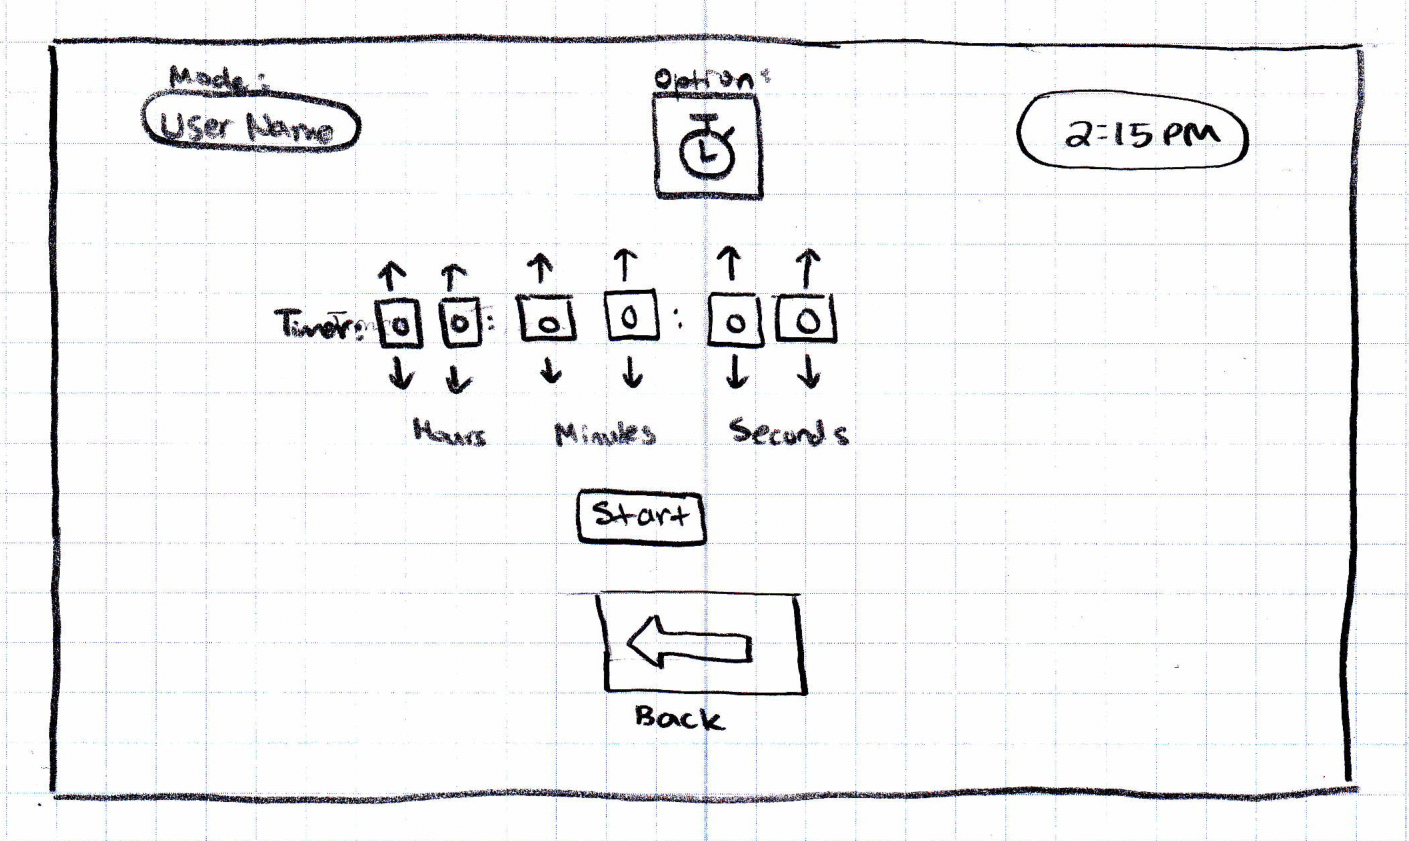 Mode:
User Name
Option:
2:15 PM
Timer: 0 0 : 0 0 : 0 0
Hours Minutes Seconds
Start
Back